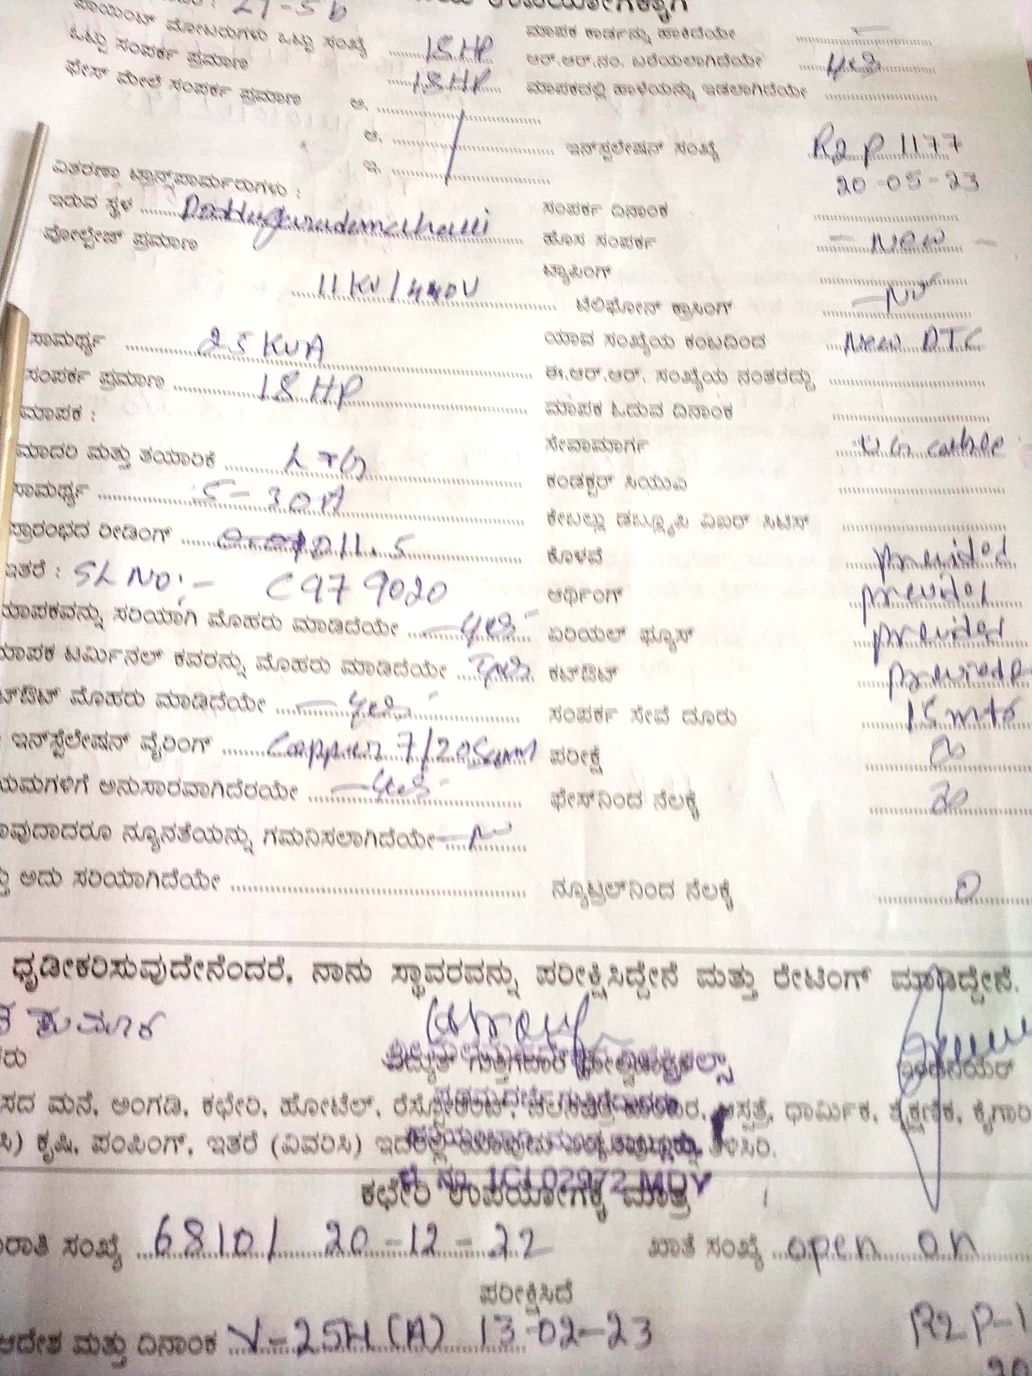 27-56
ಪಾಯಿಂಟ್ ಮೋಟರುಗಳು ಒಟ್ಟು ಸಂಖ್ಯೆ
ಒಟ್ಟು ಸಂಪರ್ಕ ಪ್ರಮಾಣ 18HP
ಫೇಸ್ ಮೇಲೆ ಸಂಪರ್ಕ ಪ್ರಮಾಣ ಅ. 18HP
ಆ.
ಇ.
ವಿತರಣಾ ಟ್ರಾನ್ಸ್‌ಪಾರ್ಮರುಗಳು :
ಇರುವ ಸ್ಥಳ
ವೋಲ್ಟೇಜ್ ಪ್ರಮಾಣ
11KV/440V
ಸಾಮರ್ಥ್ಯ 25 KVA
ಸಂಪರ್ಕ ಪ್ರಮಾಣ 18 HP
ಮಾಪಕ :
ಮಾದರಿ ಮತ್ತು ತಯಾರಿಕೆ
ಸಾಮರ್ಥ್ಯ 5-30A
ಪ್ರಾರಂಭದ ರೀಡಿಂಗ್ 011.5
ಇತರೆ : SL NO:- C979020
ಮಾಪಕವನ್ನು ಸರಿಯಾಗಿ ಮೊಹರು ಮಾಡಿದೆಯೇ -yes-
ಮಾಪಕ ಟರ್ಮಿನಲ್ ಕವರನ್ನು ಮೊಹರು ಮಾಡಿದೆಯೇ yes
ಟ್‌ಔಟ್ ಮೊಹರು ಮಾಡಿದೆಯೇ -yes-
ಇನ್‌ಸ್ಟಲೇಷನ್ ವೈರಿಂಗ್ 7/20
ಯಮಗಳಿಗೆ ಅನುಸಾರವಾಗಿದೆರಯೇ -yes-
ಾವುದಾದರೂ ನ್ಯೂನತೆಯನ್ನು ಗಮನಿಸಲಾಗಿದೆಯೇ
ತ್ತು ಅದು ಸರಿಯಾಗಿದೆಯೇ
ಮಾಪಕ ಕಾರ್ಡನ್ನು ಹಾಕಿದೆಯೇ -
ಆರ್.ಆರ್.ನಂ. ಬರೆಯಲಾಗಿದೆಯೇ yes
ಮಾಪಕದಲ್ಲಿ ಹಾಳೆಯನ್ನು ಇಡಲಾಗಿದೆಯೇ
ಇನ್‌ಸ್ಟಲೇಷನ್ ಸಂಖ್ಯೆ R2P1177
20-05-23
ಸಂಪರ್ಕ ದಿನಾಂಕ
ಹೊಸ ಸಂಪರ್ಕ - New -
ಟ್ಯಾಪಿಂಗ್
ಟೆಲಿಫೋನ್ ಕ್ರಾಸಿಂಗ್ -No-
ಯಾವ ಸಂಖ್ಯೆಯ ಕಂಬದಿಂದ New DTC
ಈ.ಆರ್.ಆರ್. ಸಂಖ್ಯೆಯ ನಂತರದ್ದು
ಮಾಪಕ ಓದುವ ದಿನಾಂಕ
ಸೇವಾಮಾರ್ಗ
ಕಂಡಕ್ಟರ್ ಸಿಯುಎ
ಕೇಬಲ್ಲು ಡಬ್ಲ್ಯೂಪಿ ವಿಐರ್ ಸಿಟಿಸ್
ಕೊಳವೆ provided
ಆರ್ಥಿಂಗ್ provided
ಏರಿಯಲ್ ಫ್ಯೂಸ್ provided
ಕಟ್‌ಔಟ್ provided
ಸಂಪರ್ಕ ಸೇವೆ ದೂರು 15 mts
ಪರೀಕ್ಷೆ ∞
ಫೇಸ್‌ನಿಂದ ನೆಲಕ್ಕೆ
ನ್ಯೂಟ್ರಲ್‌ನಿಂದ ನೆಲಕ್ಕೆ 0
ಧೃಡೀಕರಿಸುವುದೇನೆಂದರೆ, ನಾನು ಸ್ಥಾವರವನ್ನು ಪರೀಕ್ಷಿಸಿದ್ದೇನೆ ಮತ್ತು ರೇಟಿಂಗ್ ಮಾಡಿದ್ದೇನೆ.
ಕುಮಾರ
ರು ವಿದ್ಯುತ್ ಗುತ್ತಿಗೆದಾರ
ಸದ ಮನೆ, ಅಂಗಡಿ, ಕಛೇರಿ, ಹೋಟೆಲ್, ಆಸ್ಪತ್ರೆ, ಧಾರ್ಮಿಕ, ಶೈಕ್ಷಣಿಕ, ಕೈಗಾರಿ
ಸಿ) ಕೃಷಿ, ಪಂಪಿಂಗ್, ಇತರೆ (ವಿವರಿಸಿ) ಇದರಲ್ಲಿ ಯಾವುದು ತಿಳಿಸಿರಿ.
ನಂ. 1CL02972 MDY
ಕಛೇರಿ ಉಪಯೋಗಕ್ಕೆ ಮಾತ್ರ
ರಾತಿ ಸಂಖ್ಯೆ 6810/ 20-12-22 ಖಾತೆ ಸಂಖ್ಯೆ open on
ಪರೀಕ್ಷಿಸಿದೆ
ಆದೇಶ ಮತ್ತು ದಿನಾಂಕ V-25H(A) 13-02-23 R2P-1
20